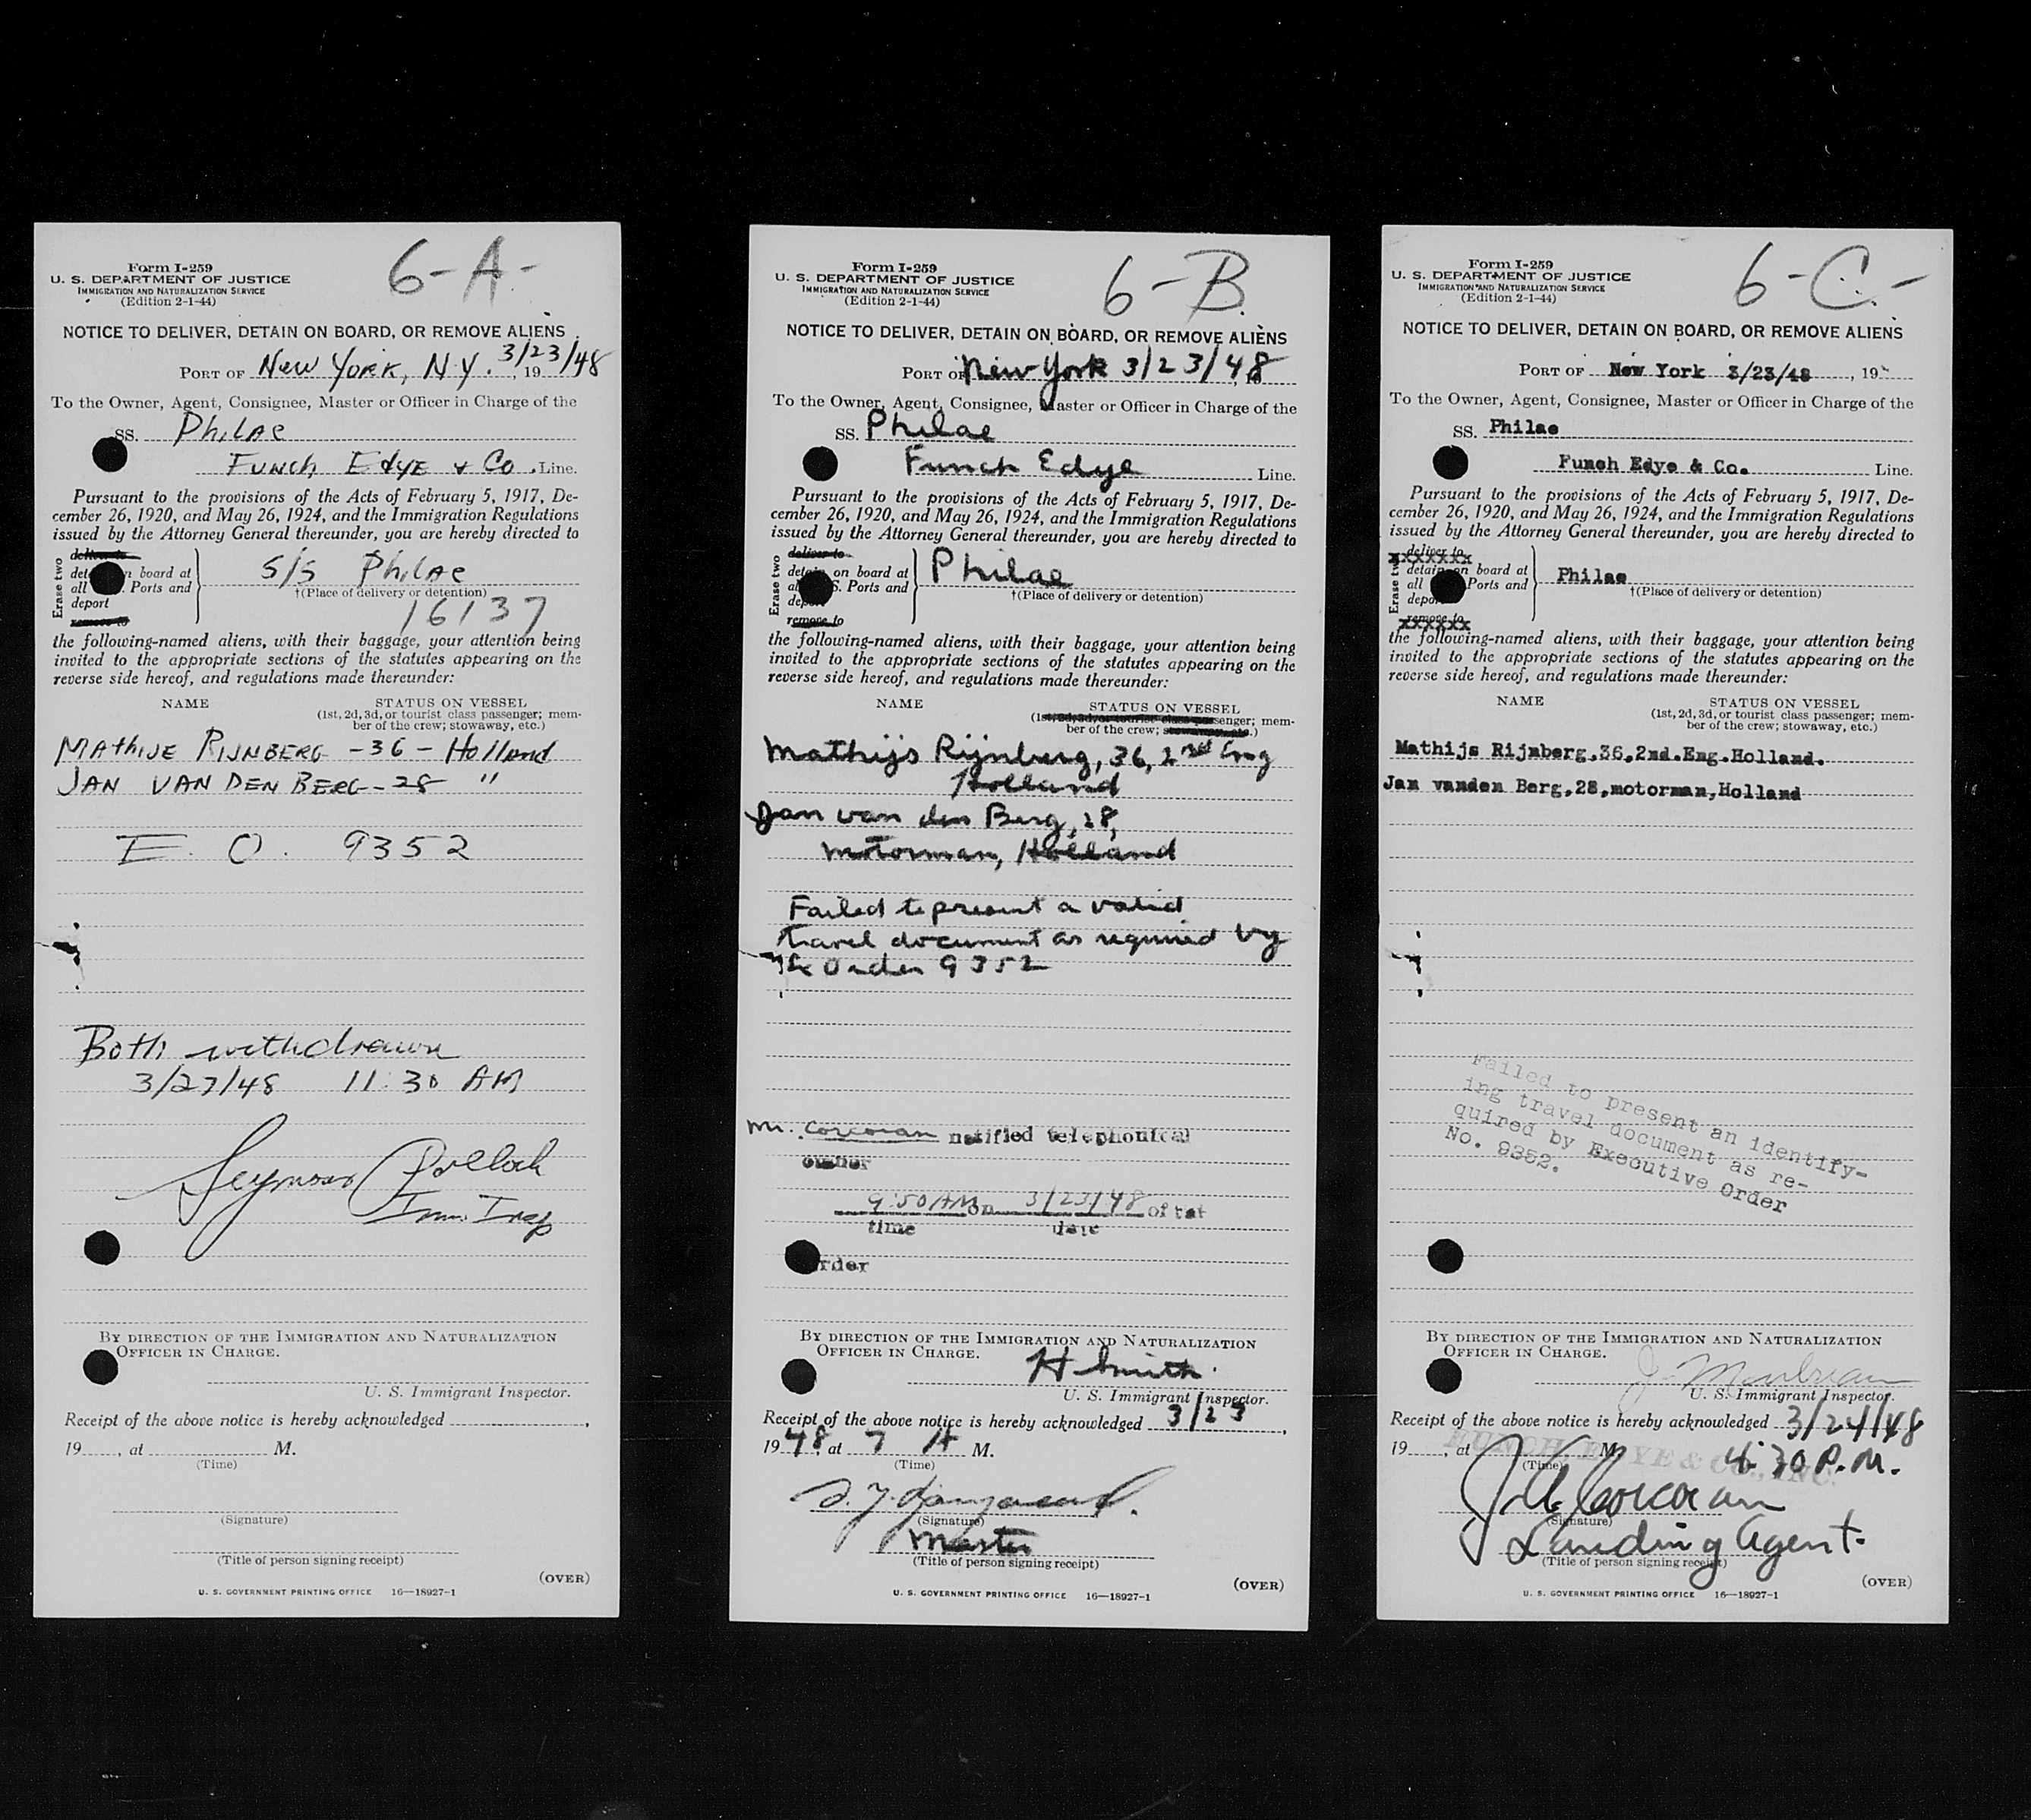 6-A-
Form I-259
U. S. DEPARTMENT OF JUSTICE
IMMIGRATION AND NATURALIZATION SERVICE
(Edition 2-1-44)
NOTICE TO DELIVER, DETAIN ON BOARD, OR REMOVE ALIENS
PORT OF New York, N.Y. 3/23/48, 19
To the Owner, Agent, Consignee, Master or Officer in Charge of the
SS. Philae
Funch Edye & Co. Line.
Pursuant to the provisions of the Acts of February 5, 1917, De-
cember 26, 1920, and May 26, 1924, and the Immigration Regulations
issued by the Attorney General thereunder, you are hereby directed to
Erase two
deliver to
on board at
all Ports and
deport
remove to
S/S Philae
†(Place of delivery or detention)
16137
the following-named aliens, with their baggage, your attention being
invited to the appropriate sections of the statutes appearing on the
reverse side hereof, and regulations made thereunder:
NAME
STATUS ON VESSEL
(1st, 2d, 3d, or tourist class passenger; mem-
ber of the crew; stowaway, etc.)
MATHIJE RIJNBERG - 36 - Holland
JAN VAN DEN BERG - 28 "
E. O. 9352
Both withdrawn
3/27/48 11:30 AM
Seymour Pollock
Imm. Insp
BY DIRECTION OF THE IMMIGRATION AND NATURALIZATION
OFFICER IN CHARGE.
U. S. Immigrant Inspector.
Receipt of the above notice is hereby acknowledged
19 , at M.
(Time)
(Signature)
(Title of person signing receipt)
(OVER)
U. S. GOVERNMENT PRINTING OFFICE 16—18927-1
6-B
Form I-259
U. S. DEPARTMENT OF JUSTICE
IMMIGRATION AND NATURALIZATION SERVICE
(Edition 2-1-44)
NOTICE TO DELIVER, DETAIN ON BOARD, OR REMOVE ALIENS
PORT OF New York 3/23/48
To the Owner, Agent, Consignee, Master or Officer in Charge of the
SS. Philae
Funch Edye Line.
Pursuant to the provisions of the Acts of February 5, 1917, De-
cember 26, 1920, and May 26, 1924, and the Immigration Regulations
issued by the Attorney General thereunder, you are hereby directed to
Erase two
deliver to
on board at
S. Ports and
remove to
Philae
†(Place of delivery or detention)
the following-named aliens, with their baggage, your attention being
invited to the appropriate sections of the statutes appearing on the
reverse side hereof, and regulations made thereunder:
NAME
STATUS ON VESSEL
(1st, 2d, 3d, or tourist class passenger; mem-
ber of the crew; stowaway, etc.)
Mathijs Rijnberg, 36, 2nd Eng
Holland
Jan van den Berg, 28,
motorman, Holland
Failed to present a valid
travel document as required by
Ex Order 9352
Mr. Corcoran notified telephonical
9:50 AM on 3/23/48 of
time date
order
BY DIRECTION OF THE IMMIGRATION AND NATURALIZATION
OFFICER IN CHARGE.
H Smith
U. S. Immigrant Inspector.
Receipt of the above notice is hereby acknowledged 3/23,
1948, at 7 A M.
(Time)
(Signature)
Master
(Title of person signing receipt)
(OVER)
U. S. GOVERNMENT PRINTING OFFICE 16—18927-1
6-C-
Form I-259
U. S. DEPARTMENT OF JUSTICE
IMMIGRATION AND NATURALIZATION SERVICE
(Edition 2-1-44)
NOTICE TO DELIVER, DETAIN ON BOARD, OR REMOVE ALIENS
PORT OF New York 3/23/48, 19
To the Owner, Agent, Consignee, Master or Officer in Charge of the
SS. Philae
Funch Edye & Co. Line.
Pursuant to the provisions of the Acts of February 5, 1917, De-
cember 26, 1920, and May 26, 1924, and the Immigration Regulations
issued by the Attorney General thereunder, you are hereby directed to
Erase two
deliver to
detain on board at
all Ports and
remove to
Philae
†(Place of delivery or detention)
the following-named aliens, with their baggage, your attention being
invited to the appropriate sections of the statutes appearing on the
reverse side hereof, and regulations made thereunder:
NAME
STATUS ON VESSEL
(1st, 2d, 3d, or tourist class passenger; mem-
ber of the crew; stowaway, etc.)
Mathijs Rijnberg,36,2nd.Eng.Holland.
Jan vanden Berg,28,motorman,Holland
Failed to present an identify-
ing travel document as re-
quired by Executive Order
No. 9352.
BY DIRECTION OF THE IMMIGRATION AND NATURALIZATION
OFFICER IN CHARGE.
U. S. Immigrant Inspector.
Receipt of the above notice is hereby acknowledged 3/24/48
19 , at M. 4:30 P.M.
(Time)
FUNCH, EDYE & CO., INC.
Corcoran
(Signature)
Landing Agent.
(Title of person signing receipt)
(OVER)
U. S. GOVERNMENT PRINTING OFFICE 16—18927-1